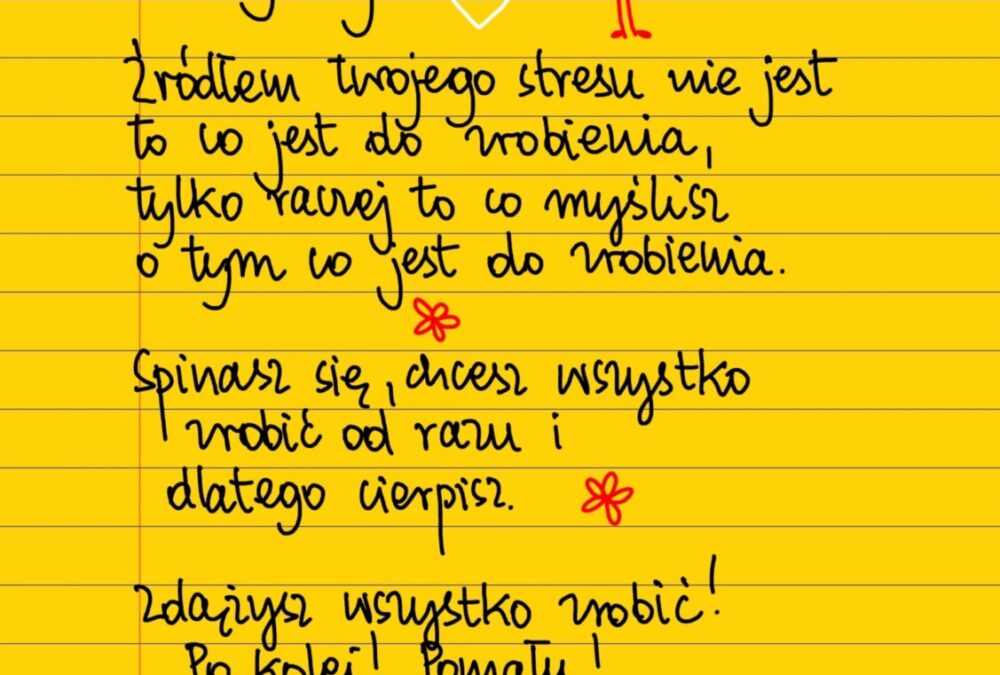 Źródłem twojego stresu nie jest
to co jest do zrobienia,
tylko raczej to co myślisz
o tym co jest do zrobienia.
Spinasz się, chcesz wszystko
zrobić od razu i
dlatego cierpisz.
Zdążysz wszystko zrobić!
Po kolei! Pomału!